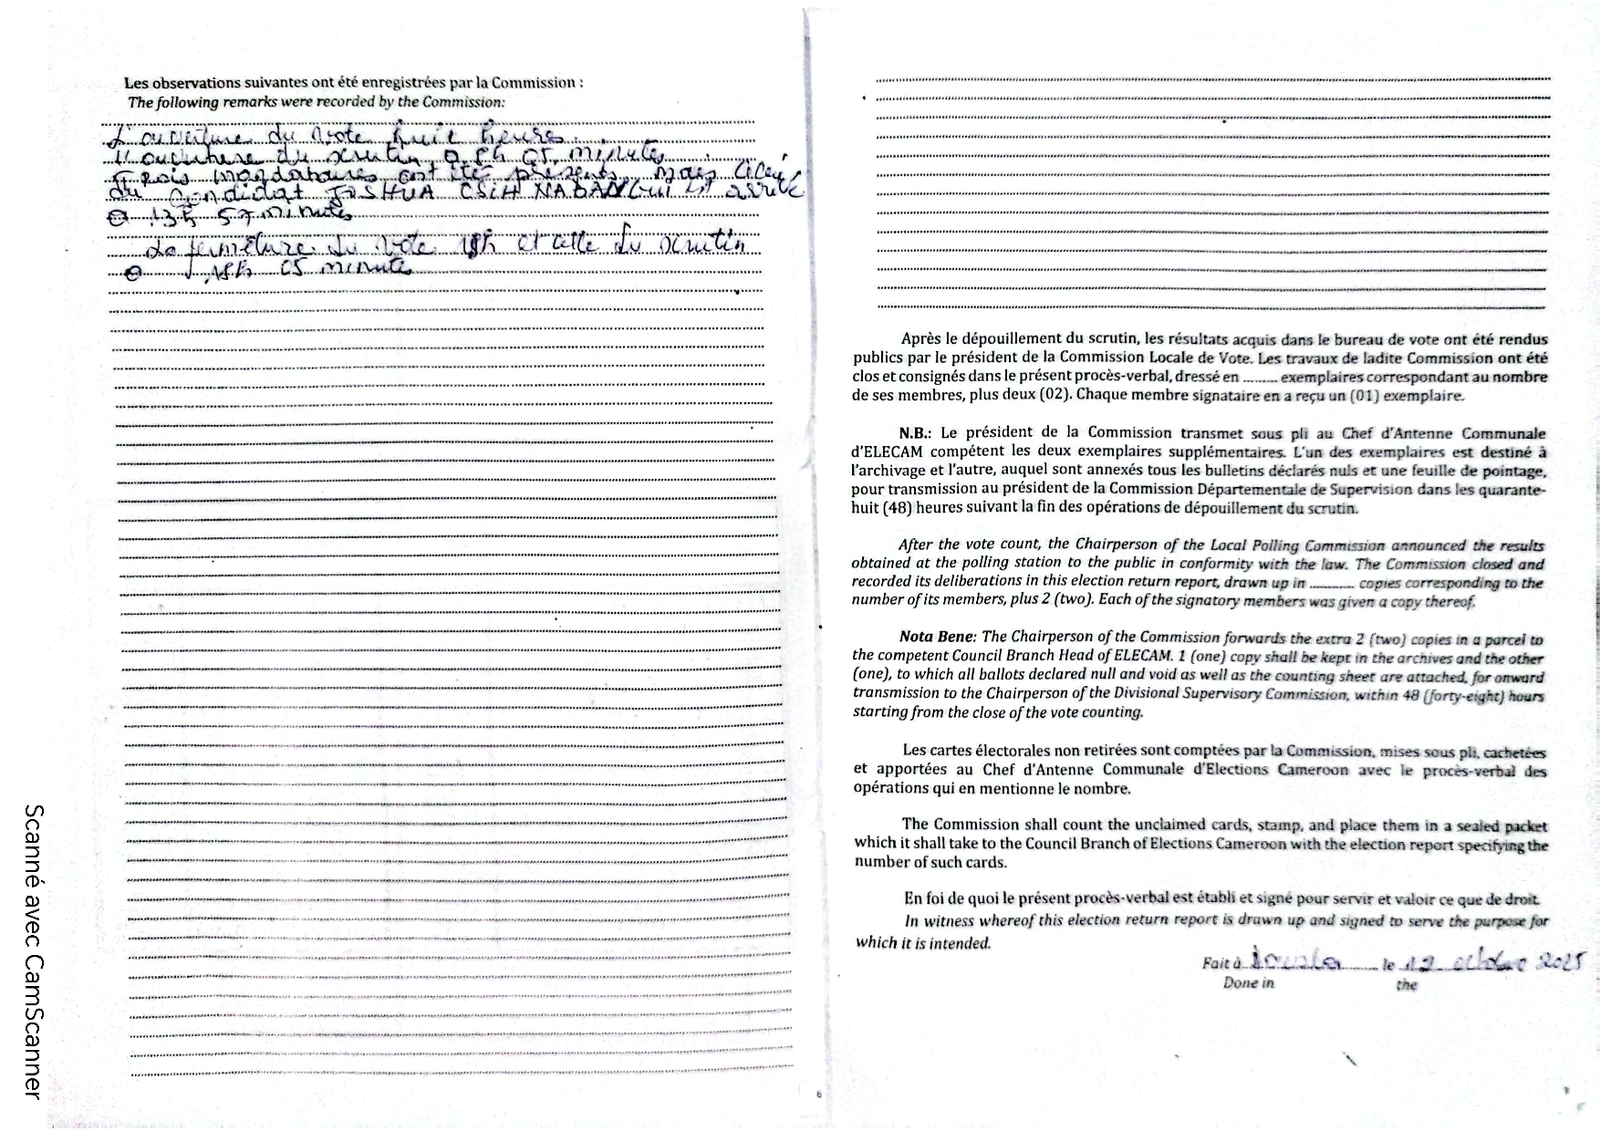 Les observations suivantes ont été enregistrées par la Commission :
The following remarks were recorded by the Commission:
L'ouverture du vote huit heures.
L'ouverture du scrutin à 8h 05 minutes
Trois mandataires ont été présents mais
du candidat JOSHUA OSIH NABAN qui est arrivé
à 13h 57 minutes
La fermeture du vote 18h et celle du scrutin
à 18h 05 minutes
6
Après le dépouillement du scrutin, les résultats acquis dans le bureau de vote ont été rendus
publics par le président de la Commission Locale de Vote. Les travaux de ladite Commission ont été
clos et consignés dans le présent procès-verbal, dressé en ......... exemplaires correspondant au nombre
de ses membres, plus deux (02). Chaque membre signataire en a reçu un (01) exemplaire.
N.B.: Le président de la Commission transmet sous pli au Chef d'Antenne Communale
d'ELECAM compétent les deux exemplaires supplémentaires. L'un des exemplaires est destiné à
l'archivage et l'autre, auquel sont annexés tous les bulletins déclarés nuls et une feuille de pointage,
pour transmission au président de la Commission Départementale de Supervision dans les quarante-
huit (48) heures suivant la fin des opérations de dépouillement du scrutin.
After the vote count, the Chairperson of the Local Polling Commission announced the results
obtained at the polling station to the public in conformity with the law. The Commission closed and
recorded its deliberations in this election return report, drawn up in ............ copies corresponding to the
number of its members, plus 2 (two). Each of the signatory members was given a copy thereof.
Nota Bene: The Chairperson of the Commission forwards the extra 2 (two) copies in a parcel to
the competent Council Branch Head of ELECAM. 1 (one) copy shall be kept in the archives and the other
(one), to which all ballots declared null and void as well as the counting sheet are attached, for onward
transmission to the Chairperson of the Divisional Supervisory Commission, within 48 (forty-eight) hours
starting from the close of the vote counting.
Les cartes électorales non retirées sont comptées par la Commission, mises sous pli, cachetées
et apportées au Chef d'Antenne Communale d'Elections Cameroon avec le procès-verbal des
opérations qui en mentionne le nombre.
The Commission shall count the unclaimed cards, stamp, and place them in a sealed packet
which it shall take to the Council Branch of Elections Cameroon with the election report specifying the
number of such cards.
En foi de quoi le présent procès-verbal est établi et signé pour servir et valoir ce que de droit.
In witness whereof this election return report is drawn up and signed to serve the purpose for
which it is intended.
Fait à Douala le 12 octobre 2025
Done in the
Scanné avec CamScanner